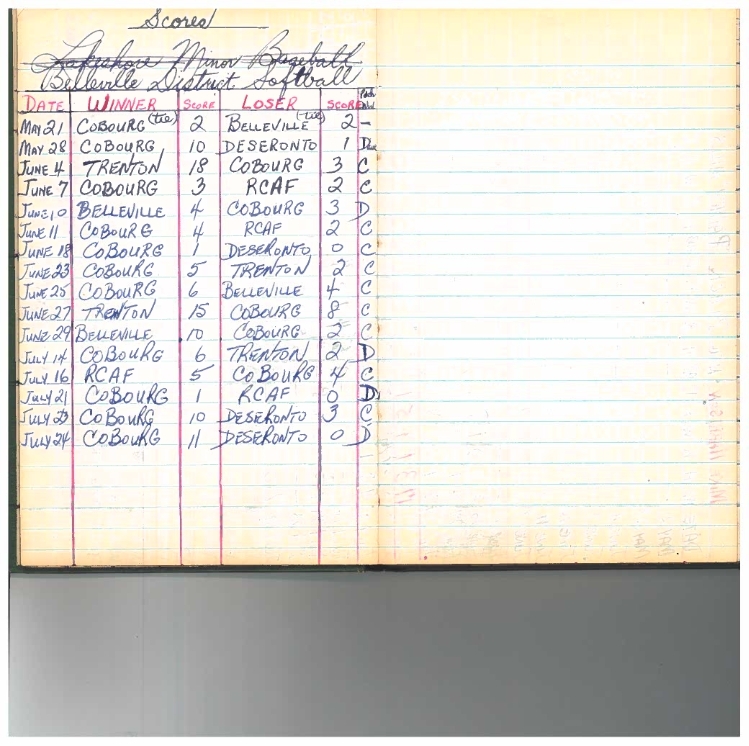 Scores
Lakeshore Minor Baseball
Belleville District Softball
DATE WINNER SCORE LOSER SCORE
MAY 21 COBOURG (tie) 2 BELLEVILLE (tie) 2 -
MAY 28 COBOURG 10 DESERONTO 1
JUNE 4 TRENTON 18 COBOURG 3 C
JUNE 7 COBOURG 3 RCAF 2 C
JUNE 10 BELLEVILLE 4 COBOURG 3 D
JUNE 11 COBOURG 4 RCAF 2 C
JUNE 18 COBOURG 1 DESERONTO 0 C
JUNE 23 COBOURG 5 TRENTON 2 C
JUNE 25 COBOURG 6 BELLEVILLE 4 C
JUNE 27 TRENTON 15 COBOURG 8 C
JUNE 29 BELLEVILLE 10 COBOURG 2 C
JULY 14 COBOURG 6 TRENTON 2 D
JULY 16 RCAF 5 COBOURG 4 C
JULY 21 COBOURG 1 RCAF 0 D
JULY 23 COBOURG 10 DESERONTO 3 C
JULY 24 COBOURG 11 DESERONTO 0 D